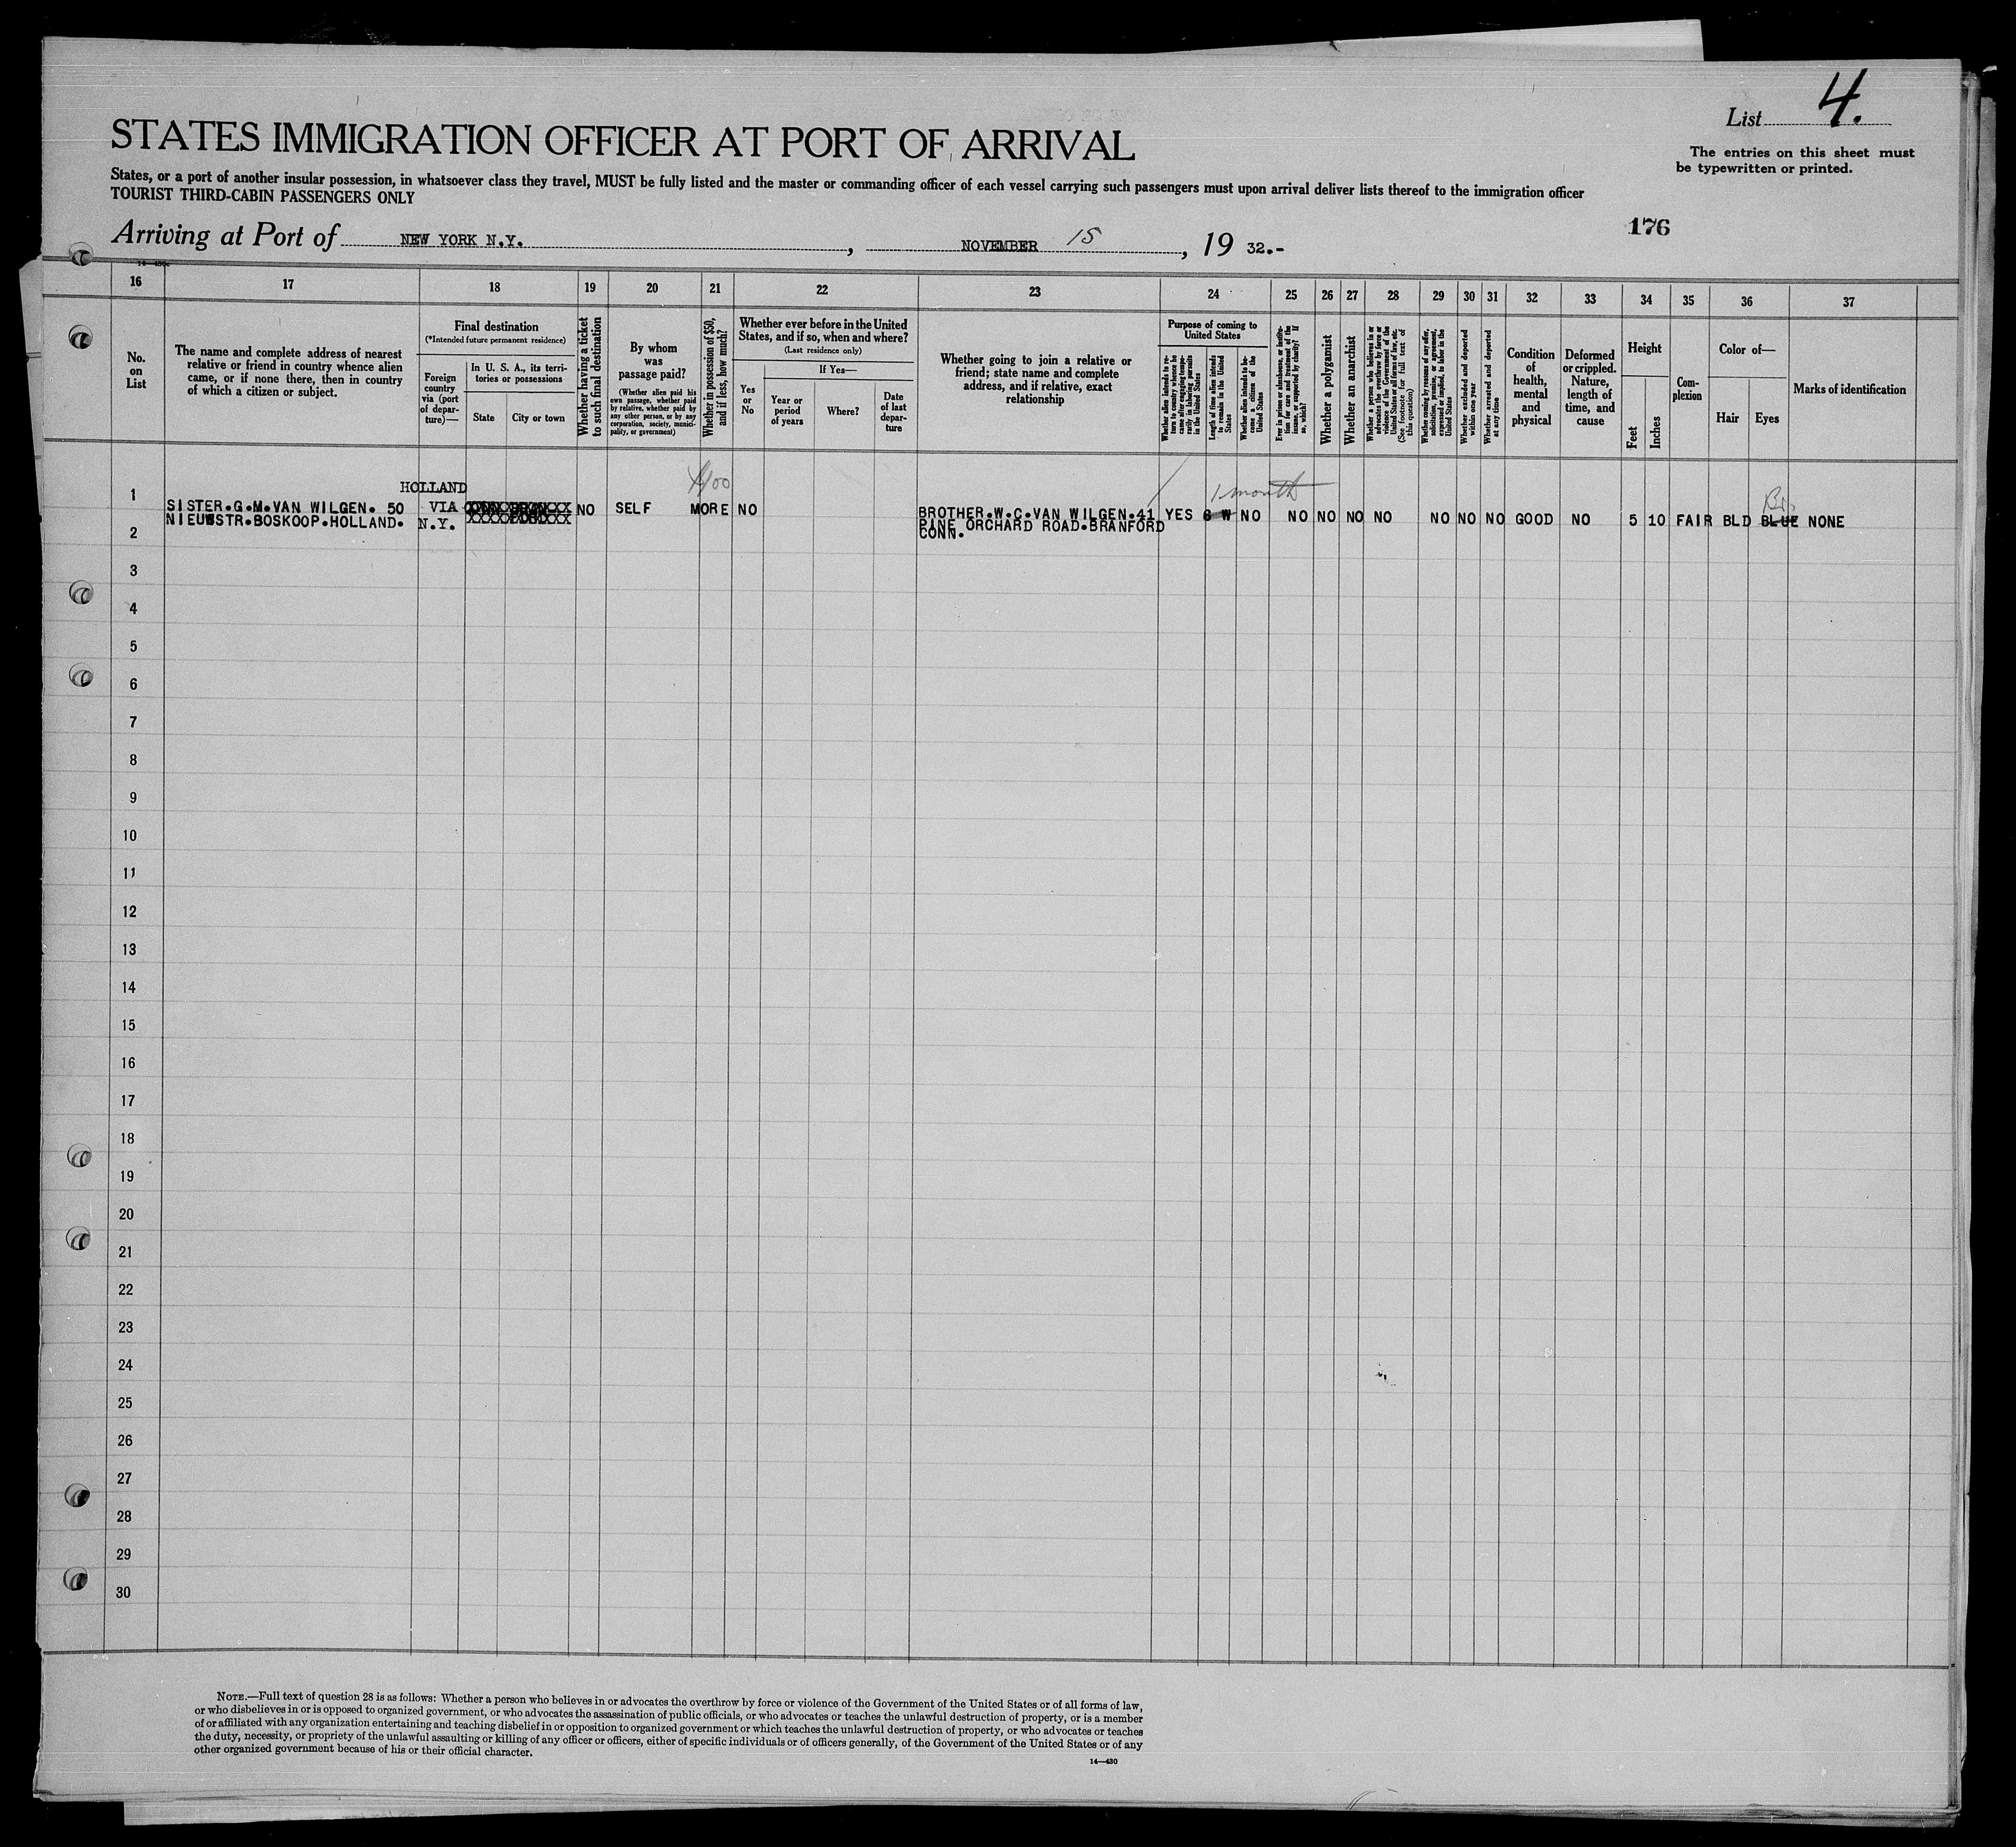 List 4.
The entries on this sheet must
be typewritten or printed.
STATES IMMIGRATION OFFICER AT PORT OF ARRIVAL
States, or a port of another insular possession, in whatsoever class they travel, MUST be fully listed and the master or commanding officer of each vessel carrying such passengers must upon arrival deliver lists thereof to the immigration officer
TOURIST THIRD-CABIN PASSENGERS ONLY
176
Arriving at Port of NEW YORK N.Y. , NOVEMBER 15 , 19 32.-
16 17 18 19 20 21 22 23 24 25 26 27 28 29 30 31 32 33 34 35 36 37
No.
on
List
The name and complete address of nearest
relative or friend in country whence alien
came, or if none there, then in country
of which a citizen or subject.
Final destination
(*Intended future permanent residence)
Foreign
country
via (port
of depar-
ture)—
In U. S. A., its terri-
tories or possessions
State
City or town
Whether having a ticket
to such final destination
By whom
was
passage paid?
(Whether alien paid his
own passage, whether paid
by relative, whether paid by
any other person, or by any
corporation, society, munici-
pality, or government)
Whether in possession of $50,
and if less, how much?
Whether ever before in the United
States, and if so, when and where?
(Last residence only)
Yes
or
No
If Yes—
Year or
period
of years
Where?
Date
of last
depar-
ture
Whether going to join a relative or
friend; state name and complete
address, and if relative, exact
relationship
Purpose of coming to
United States
Whether alien intends to re-
turn to country whence he
came after engaging tempo-
rarily in laboring pursuits
in the United States
Length of time alien intends
to remain in the United
States
Whether alien intends to be-
come a citizen of the
United States
Ever in prison or almshouse, or institu-
tion for care and treatment of the
insane, or supported by charity? If
so, which?
Whether a polygamist
Whether an anarchist
Whether a person who believes in or
advocates the overthrow by force or
violence of the Government of the
United States or all forms of law, etc.
(See footnote for full text of
this question)
Whether coming by reasons of any offer,
solicitation, promise, or agreement,
expressed or implied, to labor in the
United States
Whether excluded and deported
within one year
Whether arrested and deported
at any time
Condition
of
health,
mental
and
physical
Deformed
or crippled.
Nature,
length of
time, and
cause
Height
Feet
Inches
Com-
plexion
Color of—
Hair
Eyes
Marks of identification
HOLLAND 400 1 month Br.
1 SISTER.G.M.VAN WILGEN. 50 VIA NO SELF MORE NO BROTHER.W.C.VAN WILGEN.41 YES 6 W NO NO NO NO NO NO NO NO GOOD NO 5 10 FAIR BLD BLUE NONE
NIEUWSTR.BOSKOOP.HOLLAND. N.Y. PINE ORCHARD ROAD.BRANFORD
2 CONN.
3
4
5
6
7
8
9
10
11
12
13
14
15
16
17
18
19
20
21
22
23
24
25
26
27
28
29
30
NOTE.—Full text of question 28 is as follows: Whether a person who believes in or advocates the overthrow by force or violence of the Government of the United States or of all forms of law,
or who disbelieves in or is opposed to organized government, or who advocates the assassination of public officials, or who advocates or teaches the unlawful destruction of property, or is a member
of or affiliated with any organization entertaining and teaching disbelief in or opposition to organized government or which teaches the unlawful destruction of property, or who advocates or teaches
the duty, necessity, or propriety of the unlawful assaulting or killing of any officer or officers, either of specific individuals or of officers generally, of the Government of the United States or of any
other organized government because of his or their official character.
14—430